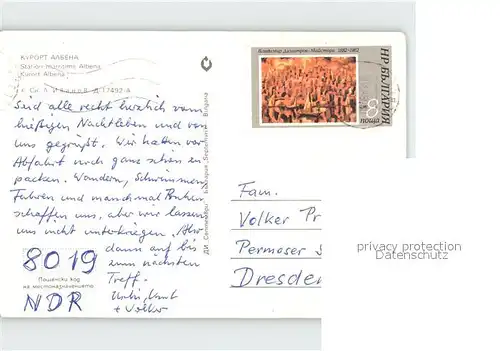 КУРОРТ АЛБЕНА
Station maritime Albena
Kurort Albena
Д-17492-А
Seid alle recht herzlich vom
hiesigen Nachtleben und von
uns gegrüßt. Wir hatten vor
Abfahrt noch ganz schön zu
packen. Wandern, Schwimmen,
Fahren und manchmal
schaffen uns, aber wir lassen
uns nicht unterkriegen. Also
dann auf bis
zum nächsten
Treff.
+ Volker
8019
Пощенски код
на местоназначението
NDR
ДИ „Септември“ България „Septemvri“ Bulgaria
Владимир Димитров-Майстора 1882-1982
НР БЪЛГАРИЯ
8
поща
Fam.
Volker Pr
Permoser S
Dresden
privacy protection
Datenschutz